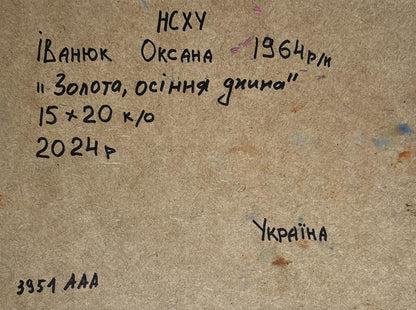 НСХУ
Іванюк Оксана 1964р/н
"Золота, осіння днина"
15×20 к/о
2024р
Україна
3951 ААА